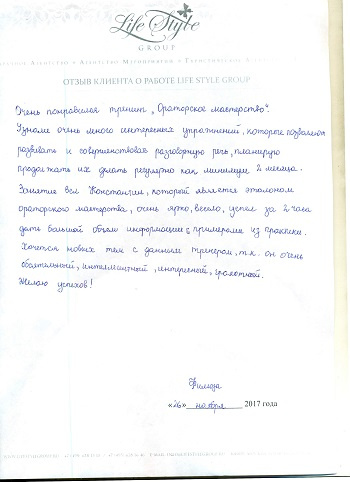 Life Style
GROUP
ОТЗЫВ КЛИЕНТА О РАБОТЕ LIFE STYLE GROUP
Очень понравился тренинг „Ораторское мастерство".
Узнали очень много интересных упражнений, которые позволяют
развивать и совершенствовать разговорную речь, планирую
продолжать их делать регулярно как минимум 2 месяца.
Занятие вел Константин, который является эталоном
ораторского мастерства, очень ярко, весело, успел за 2 часа
дать большой объем информации с примерами из практики.
Хочется новых тем с данным тренером, т.к. он очень
обаятельный, интеллигентный, интересный, грамотный.
Желаю успехов!
«26» ноября 2017 года